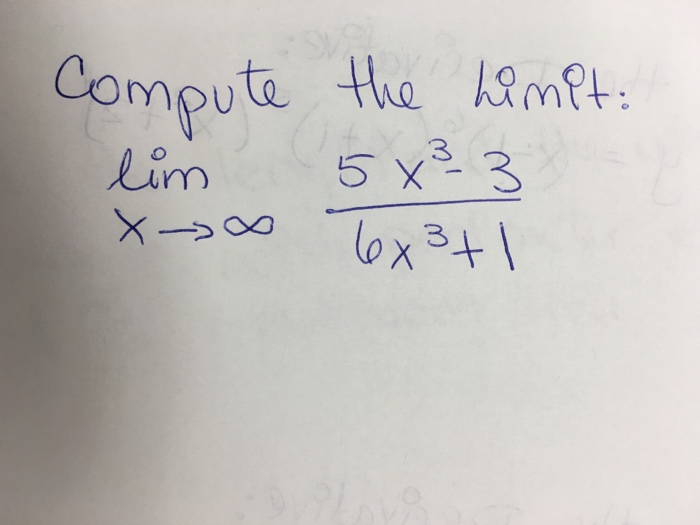 Compute the Limit:
lim 5x³- 3
x→∞ 6x³+1